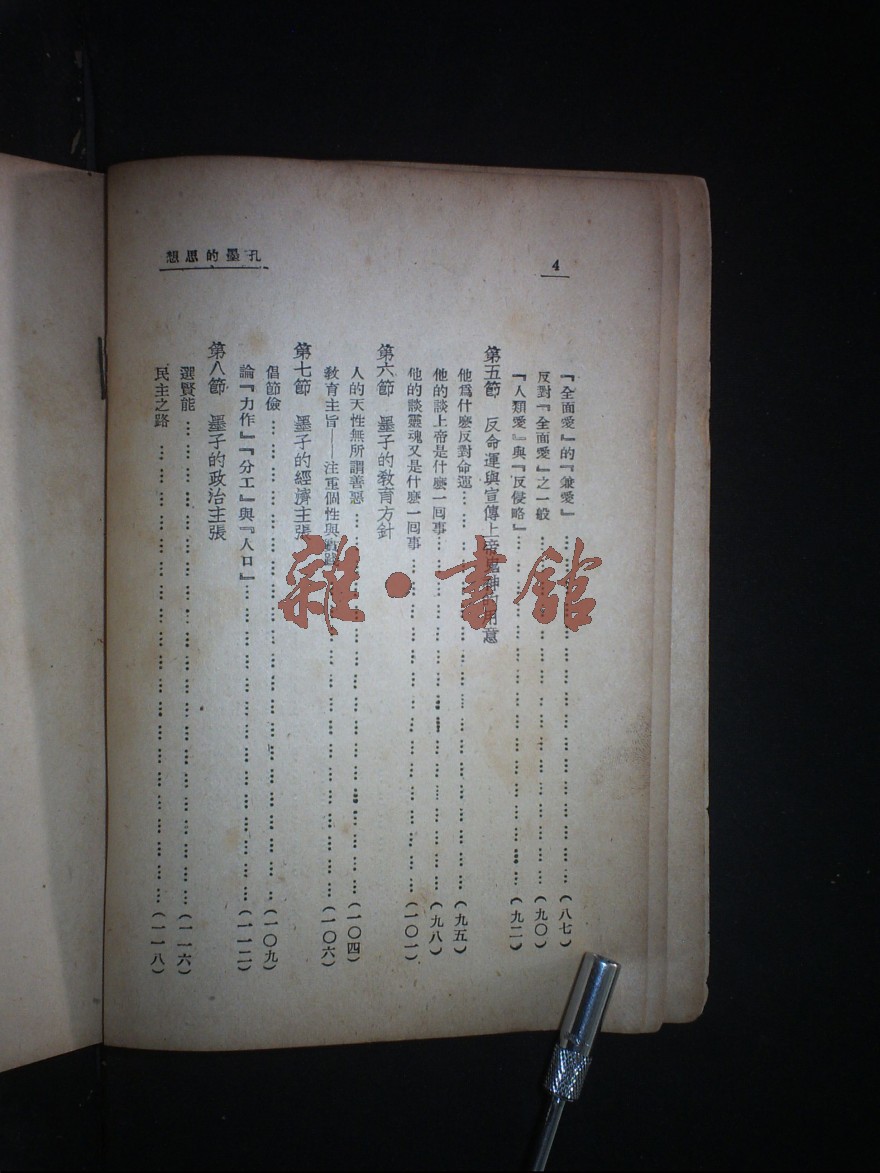 孔墨的思想
4
『全面愛』的『兼愛』……（八七）
反對『全面愛』之一般……（九〇）
『人類愛』與『反侵略』……（九二）
第五節　反命運與宣傳上帝鬼神的用意
他爲什麼反對命運……（九五）
他的談上帝是什麼一回事……（九八）
他的談靈魂又是什麼一回事……（一〇一）
第六節　墨子的教育方針
人的天性無所謂善惡……（一〇四）
教育主旨——注重個性與實踐……（一〇六）
第七節　墨子的經濟主張
倡節儉……（一〇九）
論『力作』『分工』與『人口』……（一一二）
第八節　墨子的政治主張
選賢能……（一一六）
民主之路……（一一八）
雜·書館